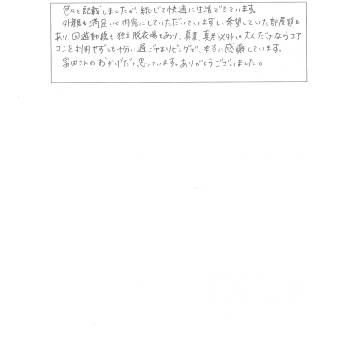 色々と記載しましたが、総じて快適に生活できています。
外観も満足いく内容にしていただいていますし、希望していた部屋数も
あり、回遊動線も独立脱衣場もあり、真夏、真冬以外は大人だけならエア
コンを利用せずとも十分に過ごせるリビングで、本当に感謝しています。
富田さんのおかげだと思っています。ありがとうございました。